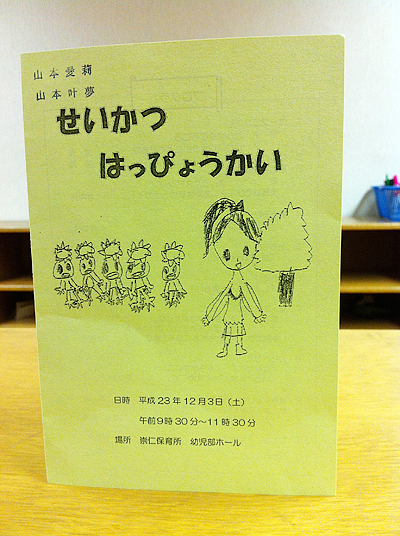 山本愛莉
山本叶夢
せいかつ
はっぴょうかい
日時 平成23年12月3日(土)
午前9時30分~11時30分
場所 崇仁保育所 幼児部ホール